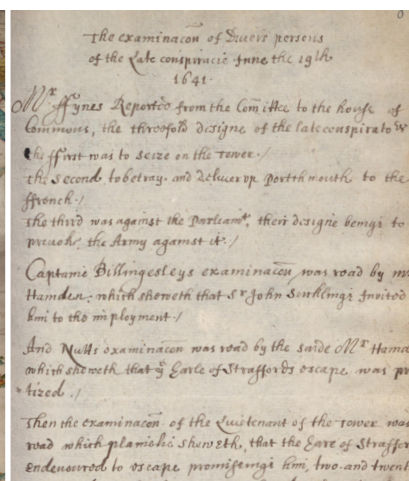 The examinacon of divers persons
of the Late conspiracie June the 19th
1641.
Mr ffynes Reported from the Com̃ittee to the house of
Commons, the threefold designe of the late conspirators
the ffirst was to seize on the Tower./
the Second to betray and deliver vp Portthmouth to the
ffrench./
The third was against the Parliamt, their designe beinge to
provok, the Army against it./
Captaine Billingesleys examinacon was read by mr
Hamden, which sheweth that Sr John Sucklinge Invited
him to the imployment./
And Nutts examinacon was read by the saide Mr Hamd
which sheweth that ye Earle of Straffords escape was pr
tized./
Then the examinacon of the Lieutenant of the Tower was
read which plainelie sheweth, that the Earle of Straffor
endevoured to escape promissinge him, two and twent